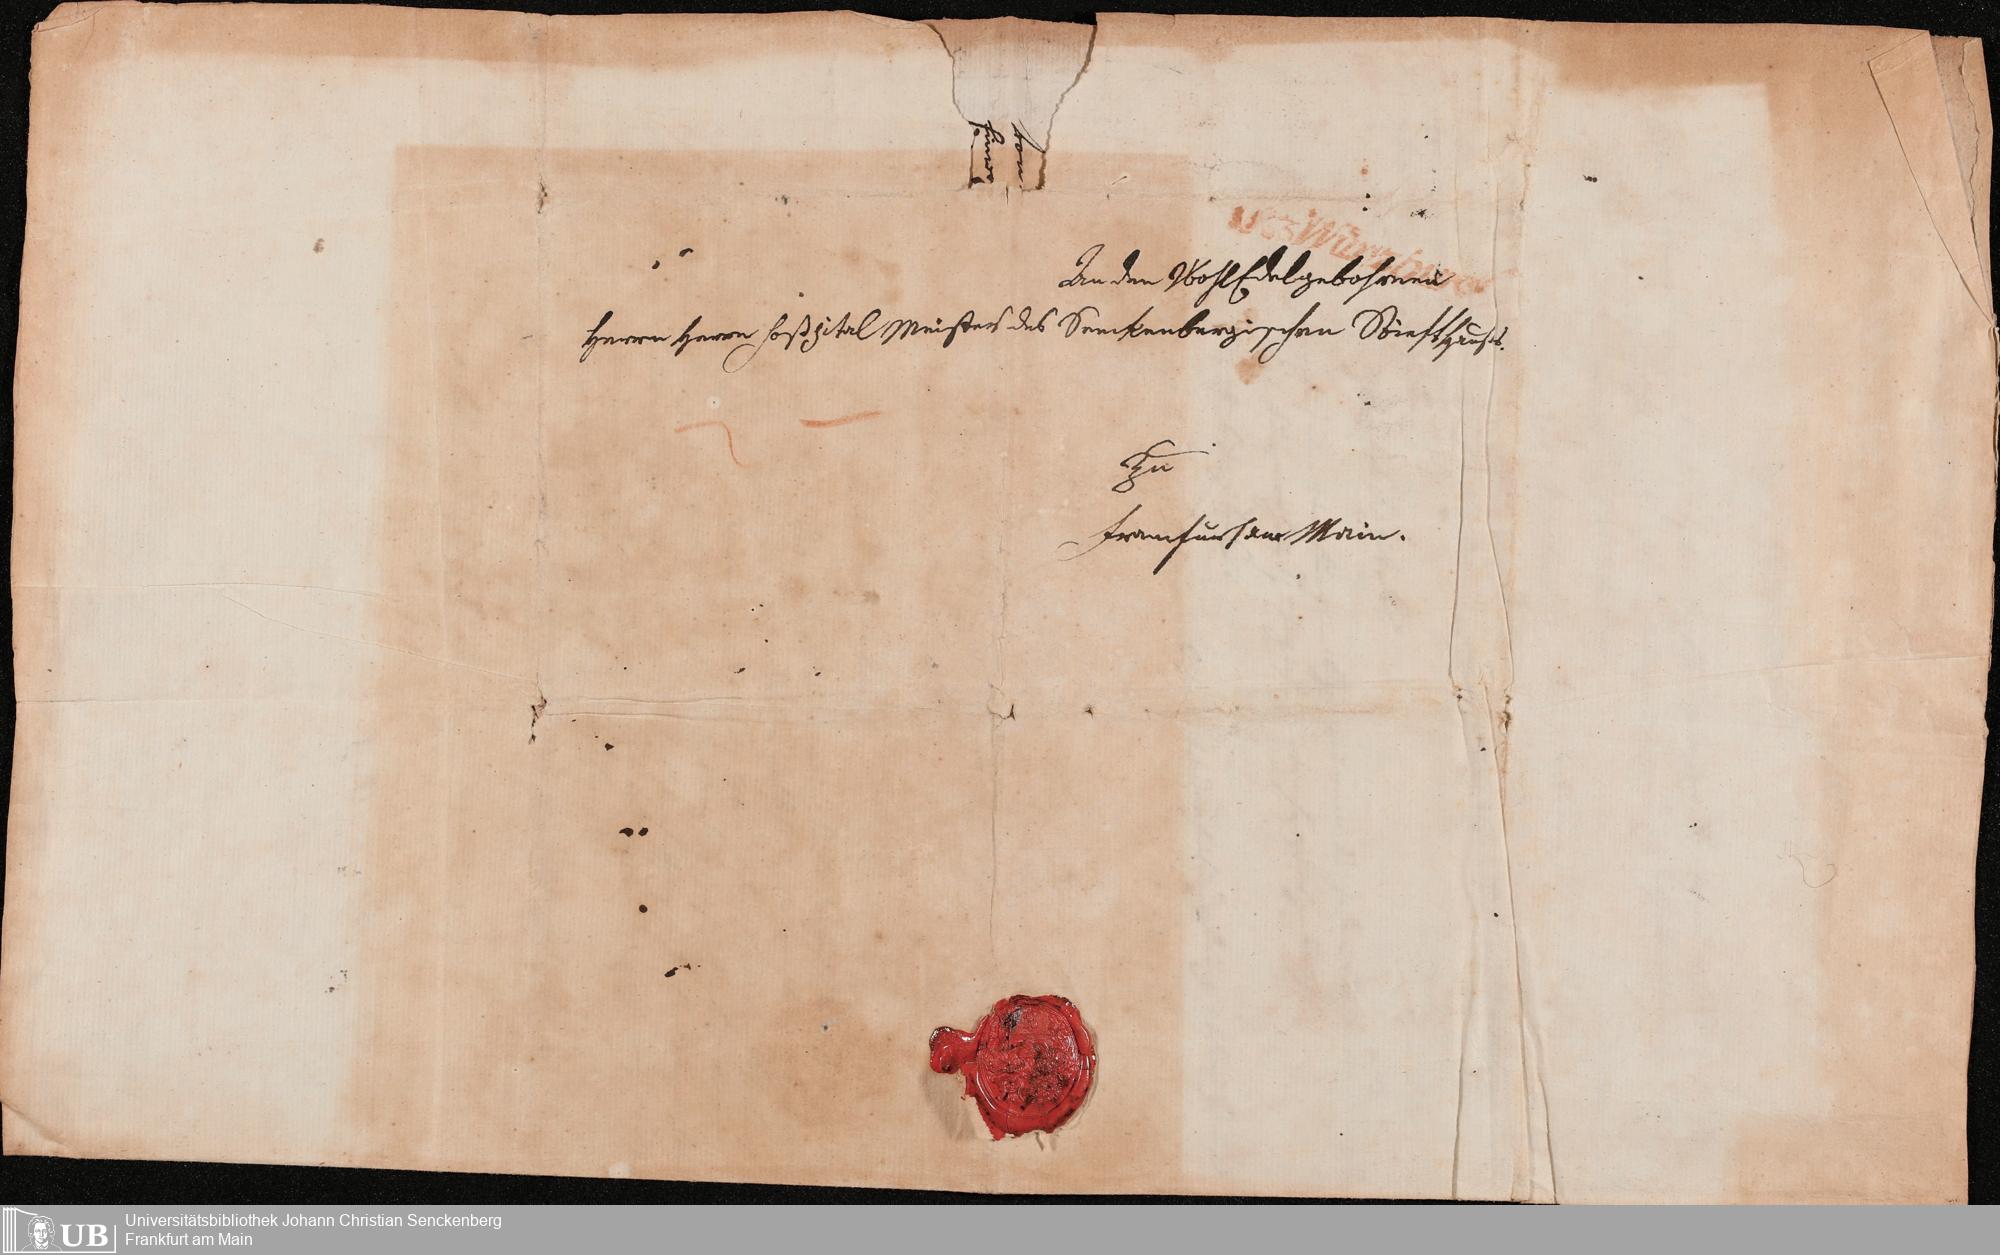 von
An den WohlEdelgebohrnen
Herrn Herrn Hospital Meister des Senckenbergischen Stiefthauses.
Zu
Franckfurt am Main.
UB
Universitätsbibliothek Johann Christian Senckenberg
Frankfurt am Main